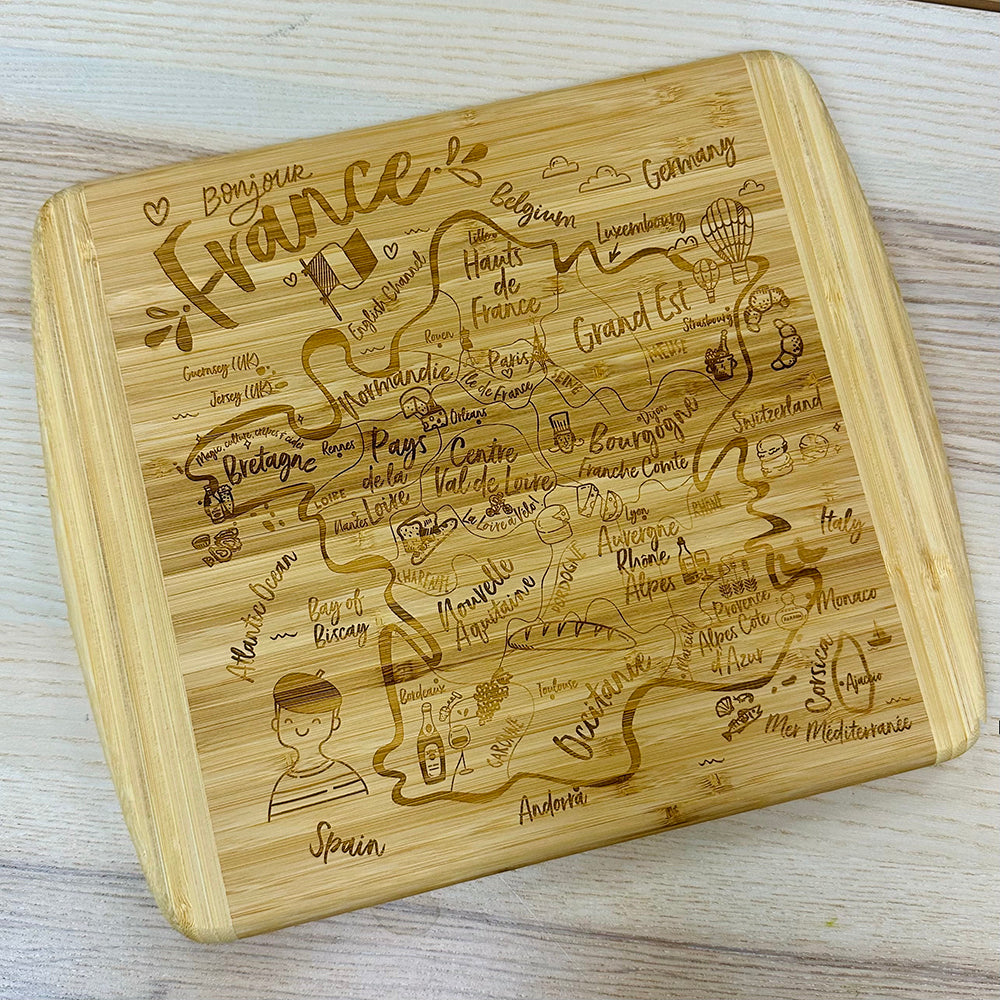 Bonjour
France
Belgium
Germany
Luxembourg
English Channel
Hauts
de
France
Grand Est
Strasbourg
MEUSE
Rouen
Paris
Ile de France
SEINE
Guernsey (UK)
Jersey (UK)
Normandie
Orléans
Dijon
Bourgogne
Franche Comte
Switzerland
Magic, culture, crepes & cider
Bretagne
Rennes
Pays
de la
Loire
Centre
Val de Loire
LOIRE
Nantes
La Loire à Vélo
Lyon
RHONE
Auvergne
Rhône
Alpes
Italy
Atlantic Ocean
Bay of
Biscay
CHARENTE
Nouvelle
Aquitaine
DORDOGNE
Provence
Alpes Cote
d'Azur
Marseille
Monaco
Corsica
Ajaccio
Mer Méditerranée
Bordeaux
Toulouse
GARONNE
Occitanie
Andorra
Spain